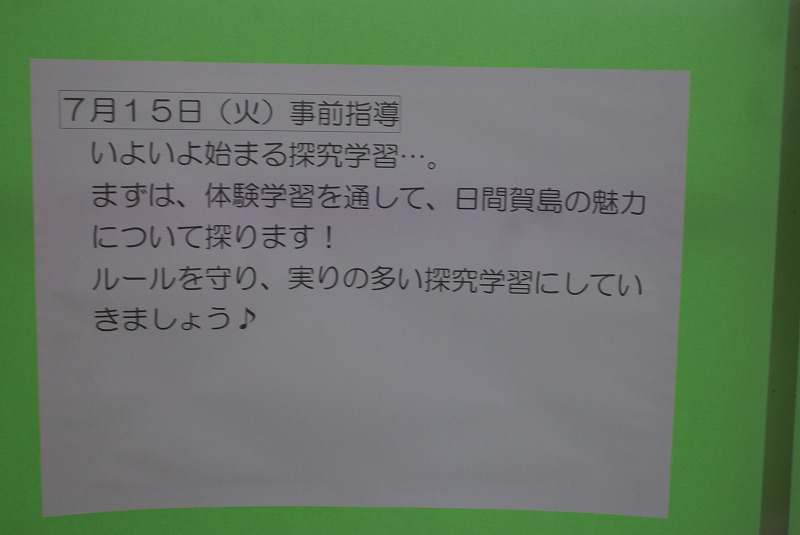 7月15日（火）事前指導
いよいよ始まる探究学習…。
まずは、体験学習を通して、日間賀島の魅力
について探ります！
ルールを守り、実りの多い探究学習にしてい
きましょう♪